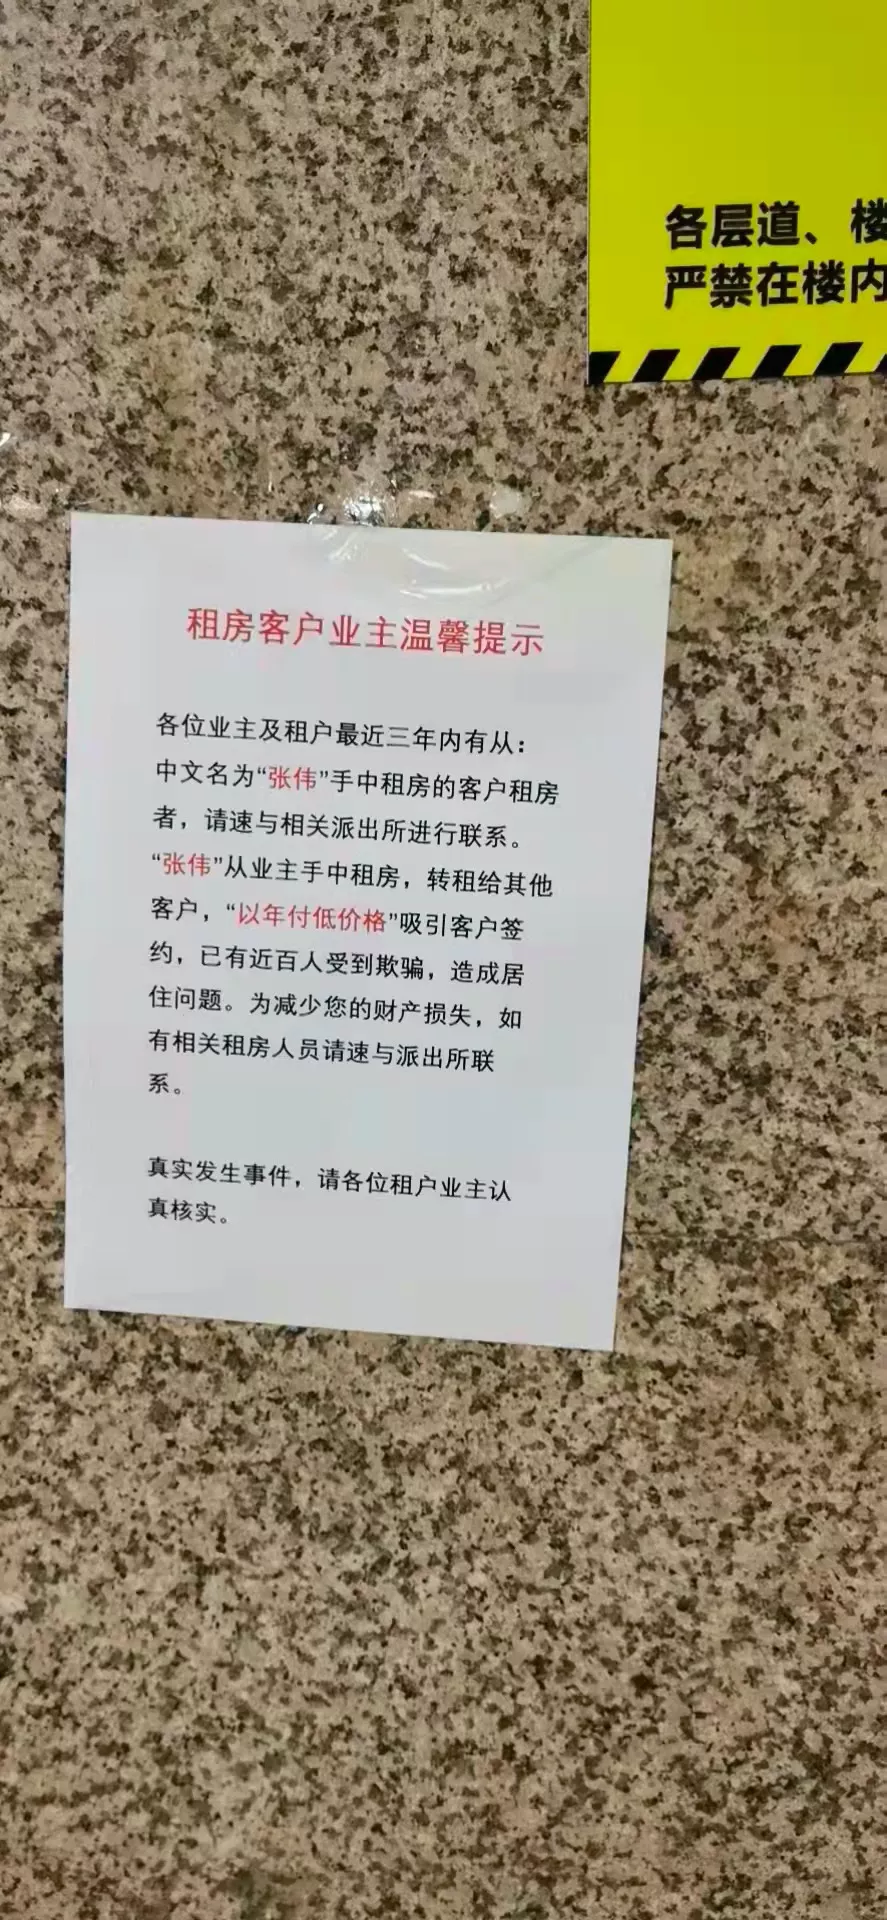 各层道、楼
严禁在楼内
租房客户业主温馨提示
各位业主及租户最近三年内有从：
中文名为“张伟”手中租房的客户租房
者，请速与相关派出所进行联系。
“张伟”从业主手中租房，转租给其他
客户，“以年付低价格”吸引客户签
约，已有近百人受到欺骗，造成居
住问题。为减少您的财产损失，如
有相关租房人员请速与派出所联
系。
真实发生事件，请各位租户业主认
真核实。